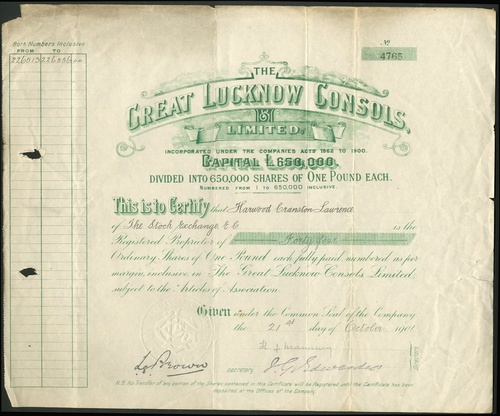 Both Numbers Inclusive
FROM TO
226513 226556
No
4765
THE
GREAT LUCKNOW CONSOLS,
LIMITED.
INCORPORATED UNDER THE COMPANIES ACTS 1862 TO 1900.
CAPITAL £650,000.
DIVIDED INTO 650,000 SHARES OF ONE POUND EACH.
NUMBERED FROM 1 TO 650,000 INCLUSIVE.
This is to Certify that Harwood Cranston Lawrence
of The Stock Exchange E C is the
Registered Proprietor of Forty four
Ordinary Shares of One Pound each fully paid numbered as per
margin, inclusive, in The Great Lucknow Consols Limited,
subject to the Articles of Association.
Given under the Common Seal of the Company
the 21st day of October 1901
L. G. Brown
SECRETARY. J. G. Edwardes
N.B. No Transfer of any portion of the Shares contained in this Certificate will be Registered until the Certificate has been
deposited at the Offices of the Company.